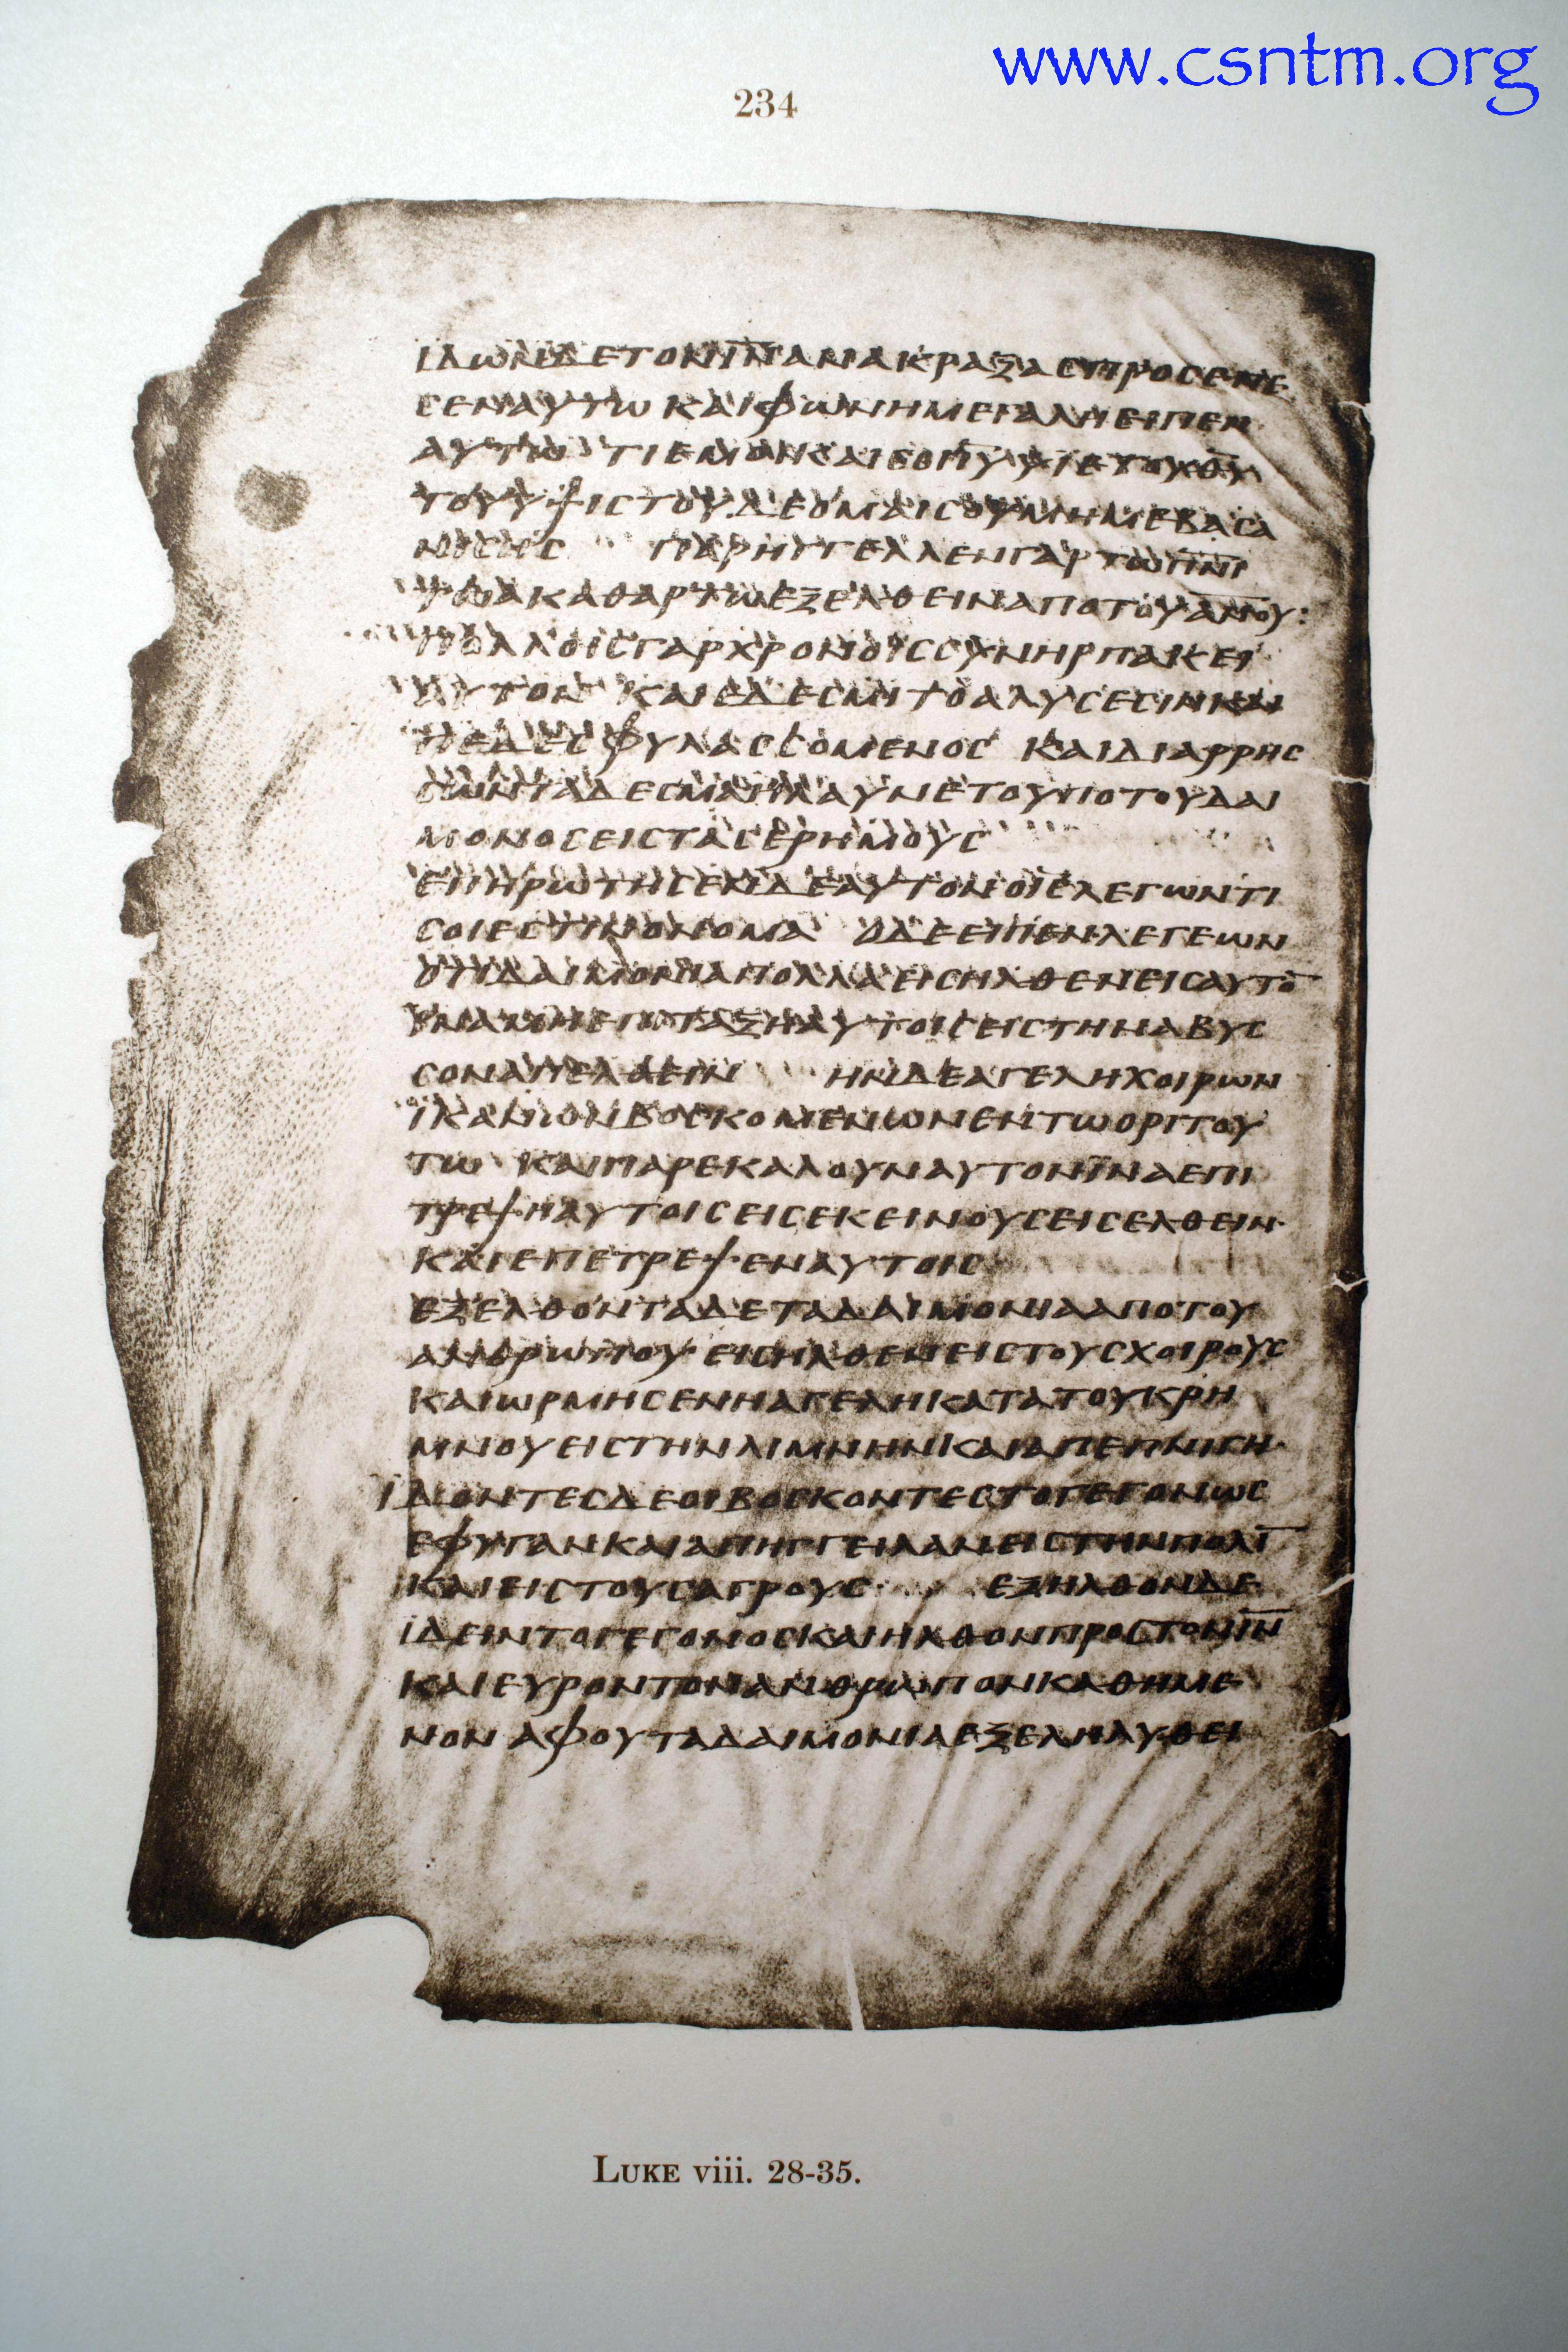 www.csntm.org
234
ΙΔΩΝΔΕΤΟΝΙΝΑΝΑΚΡΑΞΑΣΠΡΟΣΕΠΕ
ΣΕΝΑΥΤΩ ΚΑΙΦΩΝΗΜΕΓΑΛΗΕΙΠΕΝ
ΑΥΤΩ ΤΙΕΜΟΙΚΑΙΣΟΙΙΥΥΙΕΤΟΥΘΥ
ΤΟΥΥΨΙΣΤΟΥ ΔΕΟΜΑΙΣΟΥΜΗΜΕΒΑΣΑ
ΝΙΣΗΣ ΠΑΡΗΓΓΕΛΛΕΝΓΑΡΤΩΠΝΙ
ΤΩΑΚΑΘΑΡΤΩΕΞΕΛΘΕΙΝΑΠΟΤΟΥΑΝΟΥ:
ΠΟΛΛΟΙΣΓΑΡΧΡΟΝΟΙΣΣΥΝΗΡΠΑΚΕΙ
ΑΥΤΟΝ ΚΑΙΕΔΕΣΜΙΤΟΑΛΥΣΕΣΙΝΚΑΙ
ΠΕΔΕΣ ΦΥΛΑΣΣΟΜΕΝΟΣ ΚΑΙΔΙΑΡΡΗΣ
ΣΩΝΤΑΔΕΣΜΑ ΗΛΑΥΝΕΤΟΥΠΟΤΟΥΔΑΙ
ΜΟΝΟΣΕΙΣΤΑΣΕΡΗΜΟΥΣ
ΕΠΗΡΩΤΗΣΕΝΔΕΑΥΤΟΝΟΙΣΛΕΓΩΝΤΙ
ΣΟΙΕΣΤΙΝΟΝΟΜΑ ΟΔΕΕΙΠΕΝΛΕΓΕΩΝ
ΟΤΙΔΑΙΜΟΝΙΑΠΟΛΛΑΕΙΣΗΛΘΕΝΕΙΣΑΥΤΟ̅
ΕΠΙΤΑΞΗΑΥΤΟΙΣΕΙΣΤΗΝΑΒΥΣ
ΣΟΝΑΠΕΛΘΕΙΝ ΗΝΔΕΑΓΕΛΗΧΟΙΡΩΝ
ΙΚΑΝΩΝΒΟΣΚΟΜΕΝΩΝΕΝΤΩΟΡΙΤΟΥ
ΤΩ ΚΑΙΠΑΡΕΚΑΛΟΥΝΑΥΤΟΝΪΝΑΕΠΙ
ΤΡΕΨΗΑΥΤΟΙΣΕΙΣΕΚΕΙΝΟΥΣΕΙΣΕΛΘΕΙΝ·
ΚΑΙΕΠΕΤΡΕΨΕΝΑΥΤΟΙΣ
ΕΞΕΛΘΟΝΤΑΔΕΤΑΔΑΙΜΟΝΙΑΑΠΟΤΟΥ
ΑΝΘΡΩΠΟΥ ΕΙΣΗΛΘΕΝΕΙΣΤΟΥΣΧΟΙΡΟΥΣ
ΚΑΙΩΡΜΗΣΕΝΗΑΓΕΛΗΚΑΤΑΤΟΥΚΡΗ
ΜΝΟΥΕΙΣΤΗΝΛΙΜΝΗΝΚΑΙΑΠΕΠΝΙΓΗ·
ΪΔΟΝΤΕΣΔΕΟΙΒΟΣΚΟΝΤΕΣΤΟΓΕΓΟΝΩΣ
ΕΦΥΓΑΝΚΑΙΑΠΗΓΓΕΙΛΑΝΕΙΣΤΗΝΠΟΛΙ̅
ΚΑΙΕΙΣΤΟΥΣΑΓΡΟΥΣ· ΕΞΗΛΘΟΝΔΕ
ΙΔΕΙΝΤΟΓΕΓΟΝΟΣΚΑΙΗΛΘΟΝΠΡΟΣΤΟΝΙΝ
ΚΑΙΕΥΡΟΝΤΟΝΑΝΘΡΩΠΟΝΚΑΘΗΜΕ
ΝΟΝ ΑΦΟΥΤΑΔΑΙΜΟΝΙΑΕΞΕΛΗΛΥΘΕΙ
LUKE viii. 28-35.